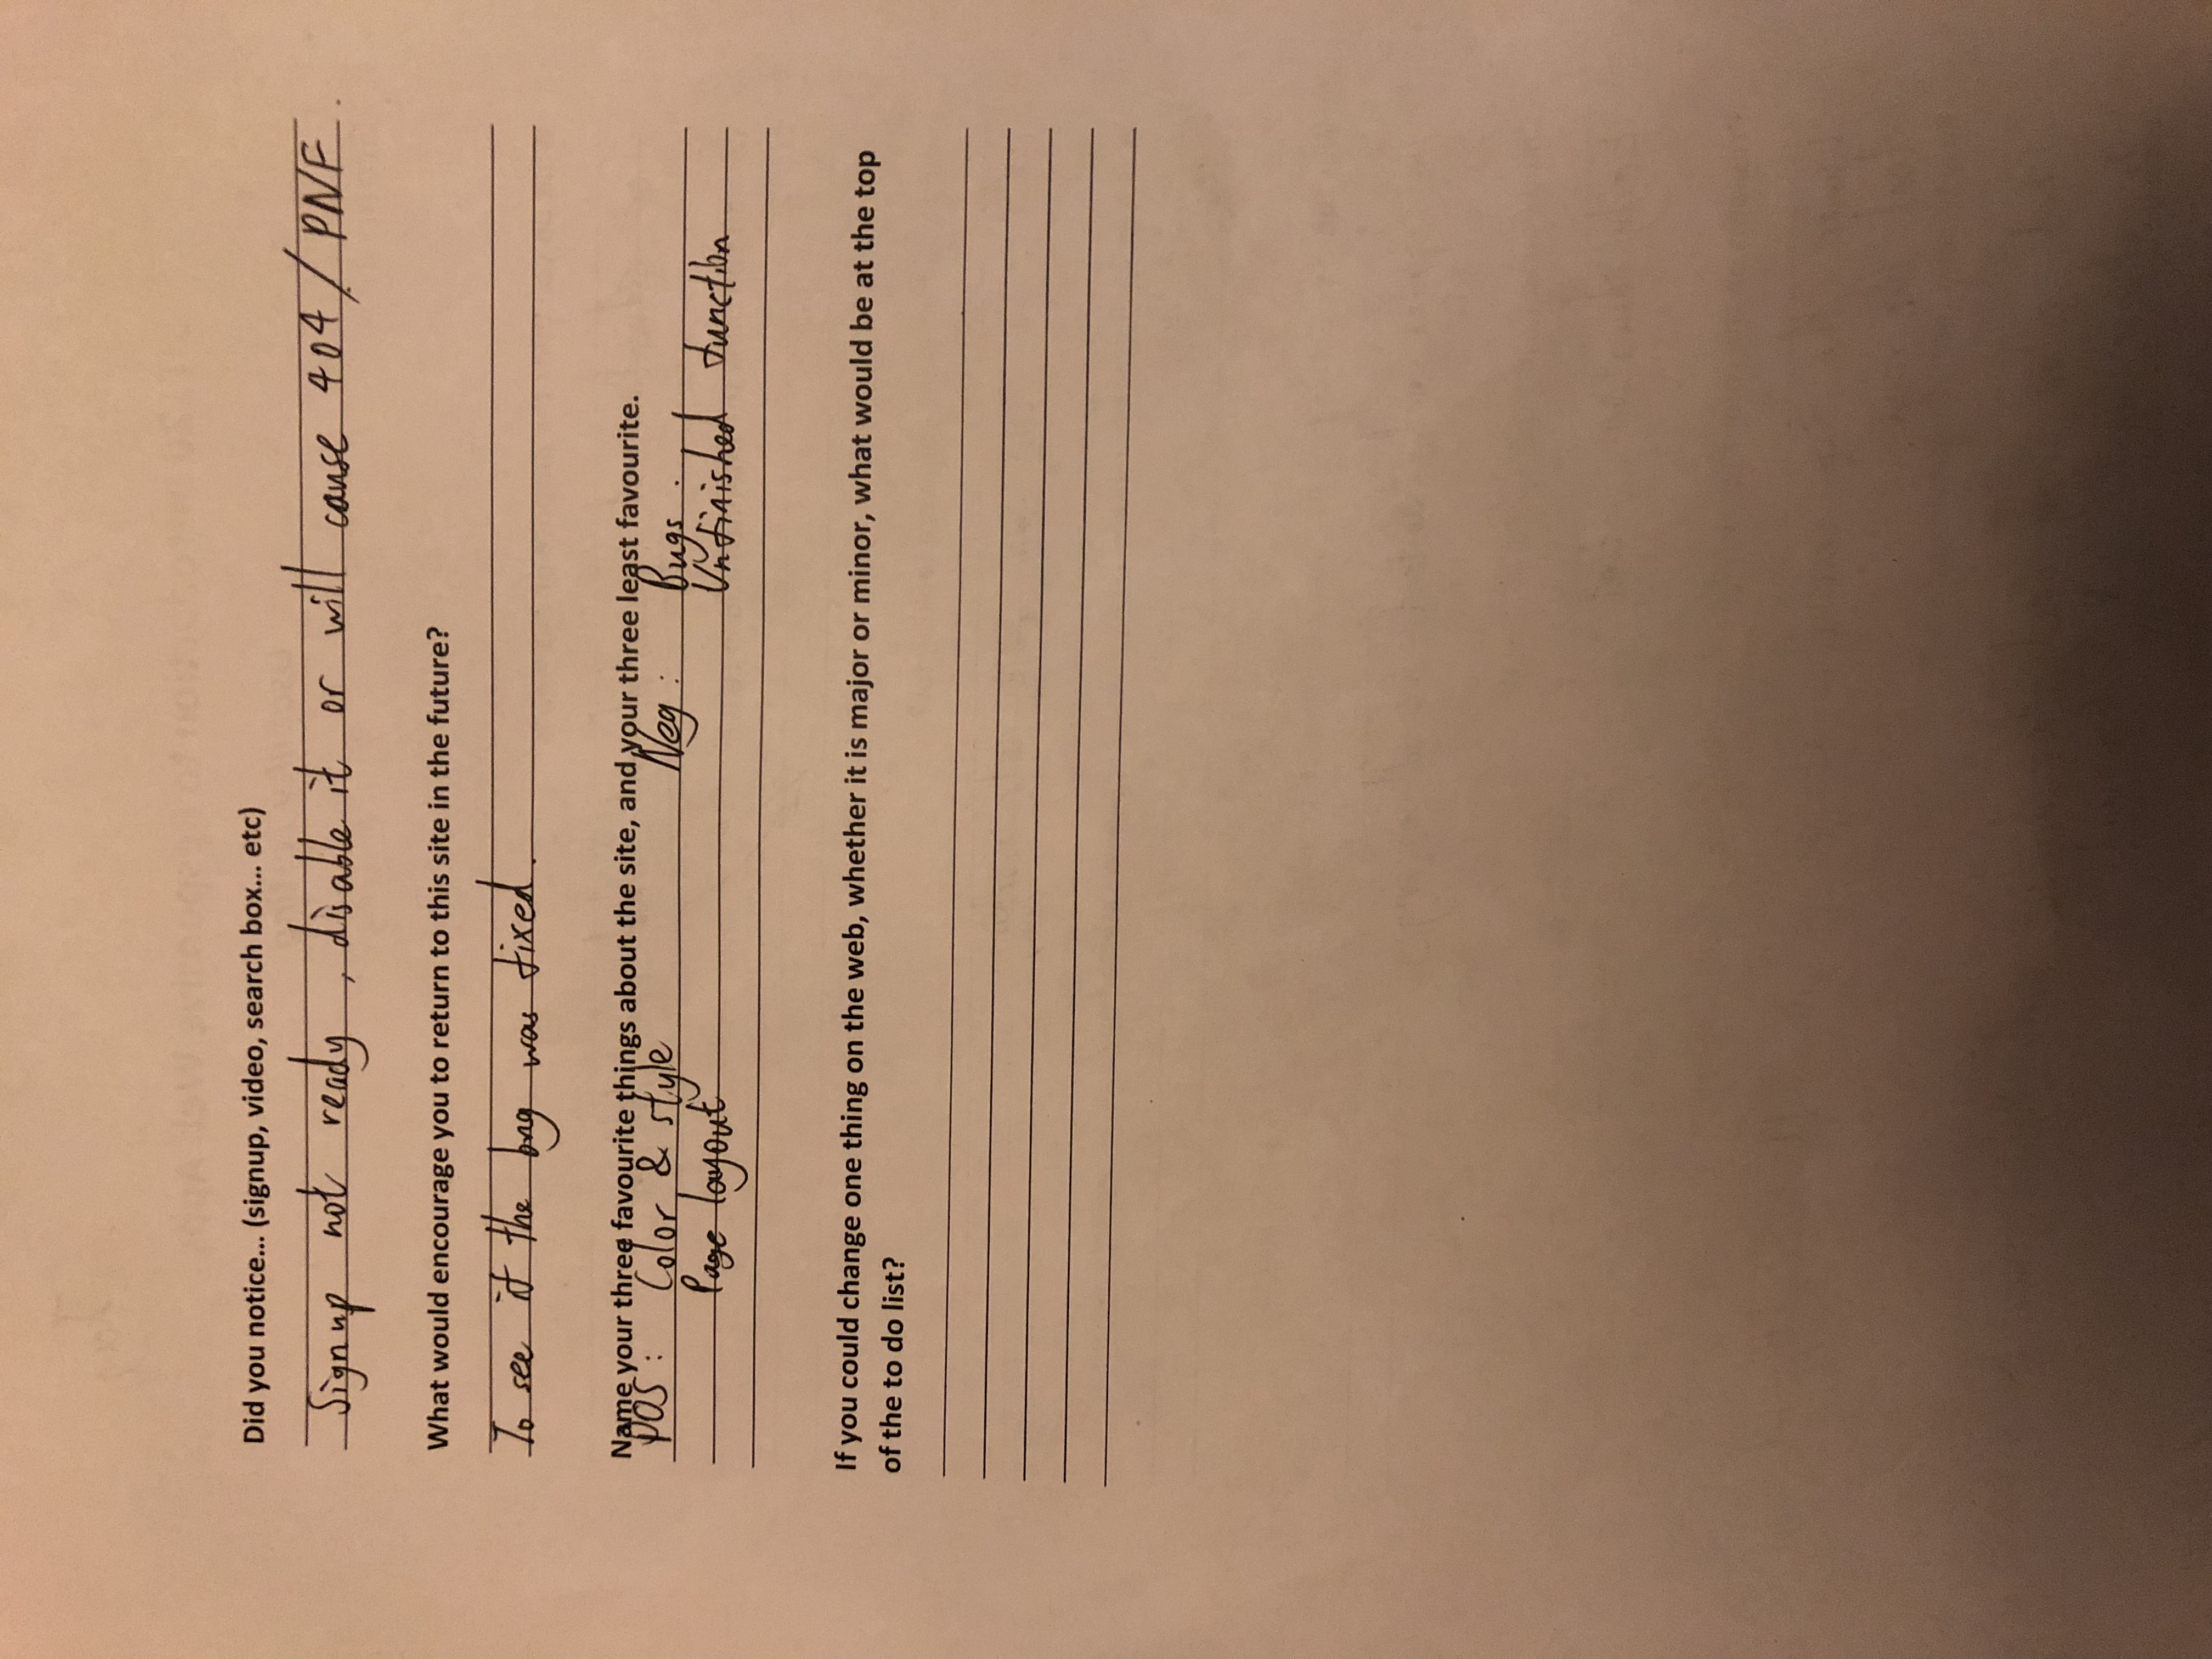 Did you notice... (signup, video, search box... etc)
Signup not ready, disable it or will cause 404 / PNF.
What would encourage you to return to this site in the future?
To see if the bug was fixed.
Name your three favourite things about the site, and your three least favourite.
POS: Color & style Neg: Bugs.
Page layout Unfinished function
If you could change one thing on the web, whether it is major or minor, what would be at the top
of the to do list?